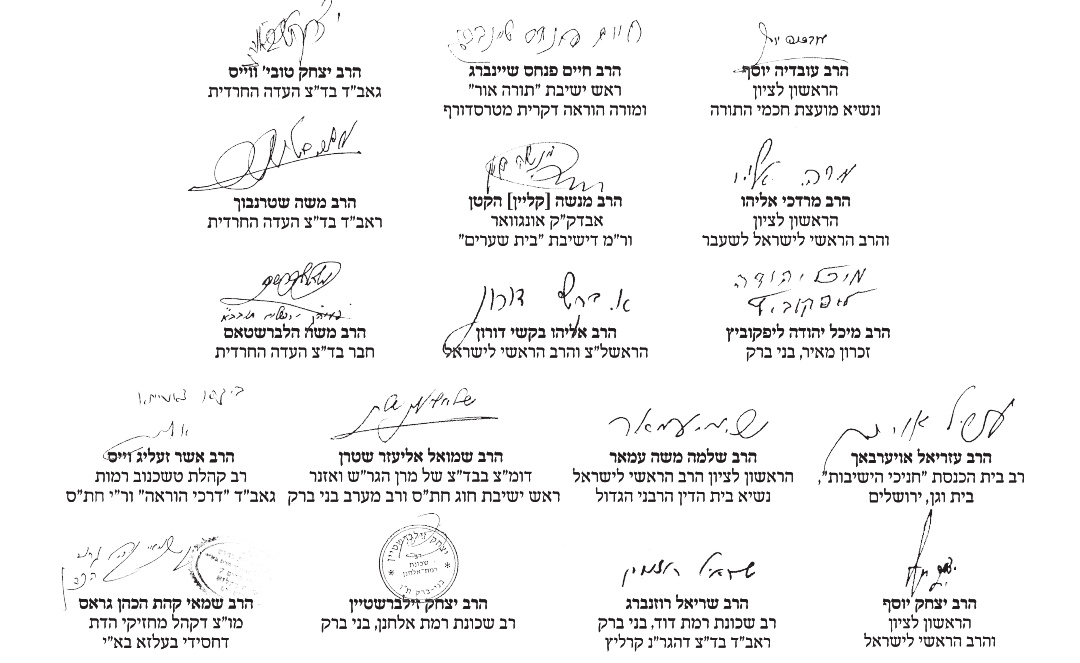 חיים פנחס שיינברג
הרב עובדיה יוסף
הראשון לציון
ונשיא מועצת חכמי התורה
הרב חיים פנחס שיינברג
ראש ישיבת "תורה אור"
ומורה הוראה דקרית מטרסדורף
הרב יצחק טובי' ווייס
גאב"ד בד"צ העדה החרדית
הרב מרדכי אליהו
הראשון לציון
והרב הראשי לישראל לשעבר
הרב מנשה [קליין] הקטן
אבדק"ק אונגוואר
ור"מ דישיבת "בית שערים"
הרב משה שטרנבוך
ראב"ד בד"צ העדה החרדית
מיכל יהודה
ליפקוביץ
הרב מיכל יהודה ליפקוביץ
זכרון מאיר, בני ברק
דורון
הרב אליהו בקשי דורון
הראשל"צ והרב הראשי לישראל
הרב משה הלברשטאם
חבר בד"צ העדה החרדית
הרב עזריאל אויערבאך
רב בית הכנסת "חניכי הישיבות",
בית וגן, ירושלים
הרב שלמה משה עמאר
הראשון לציון הרב הראשי לישראל
נשיא בית הדין הרבני הגדול
הרב שמואל אליעזר שטרן
דומ"צ בבד"צ של מרן הגר"ש ואזנר
ראש ישיבת חוג חת"ס ורב מערב בני ברק
הרב אשר זעליג וייס
רב קהלת טשכנוב רמות
גאב"ד "דרכי הוראה" ור"י חת"ס
הרב יצחק יוסף
הראשון לציון
והרב הראשי לישראל
הרב שריאל רוזנברג
רב שכונת רמת דוד, בני ברק
ראב"ד בד"צ דהגר"נ קרליץ
יצחק זילברשטיין
רב
שכונת
רמת-אלחנן
בני-ברק ת"ו
הרב יצחק זילברשטיין
רב שכונת רמת אלחנן, בני ברק
הרב שמאי קהת הכהן גראס
מו"צ דקהל מחזיקי הדת
דחסידי בעלזא בא"י